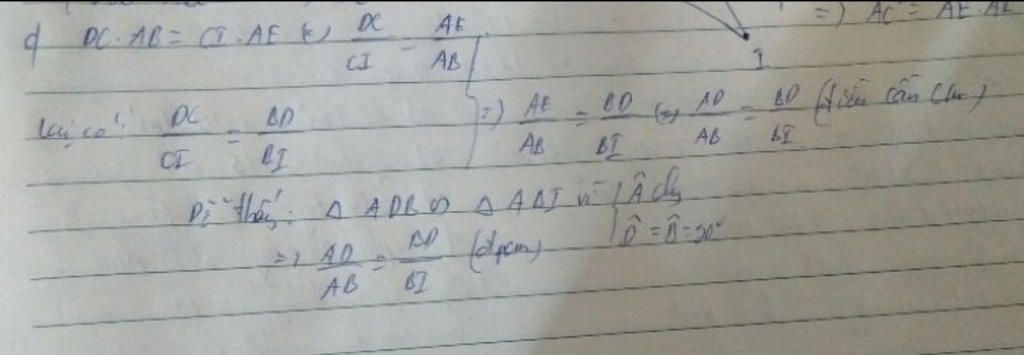 ⇒) AC² = AE.AI
d) DC.AB = CI.AE ⇔ DC/CI = AE/AB
I
Lại có: DC/CI = BD/BI ⇒ AE/AB = BD/BI ⇔ AD/AB = BD/BI (điều cần Cm)
Dễ thấy: Δ ADB ∽ Δ ABI vì { Â chg
D̂ = B̂ = 90°
⇒ AD/AB = BD/BI (đpcm)